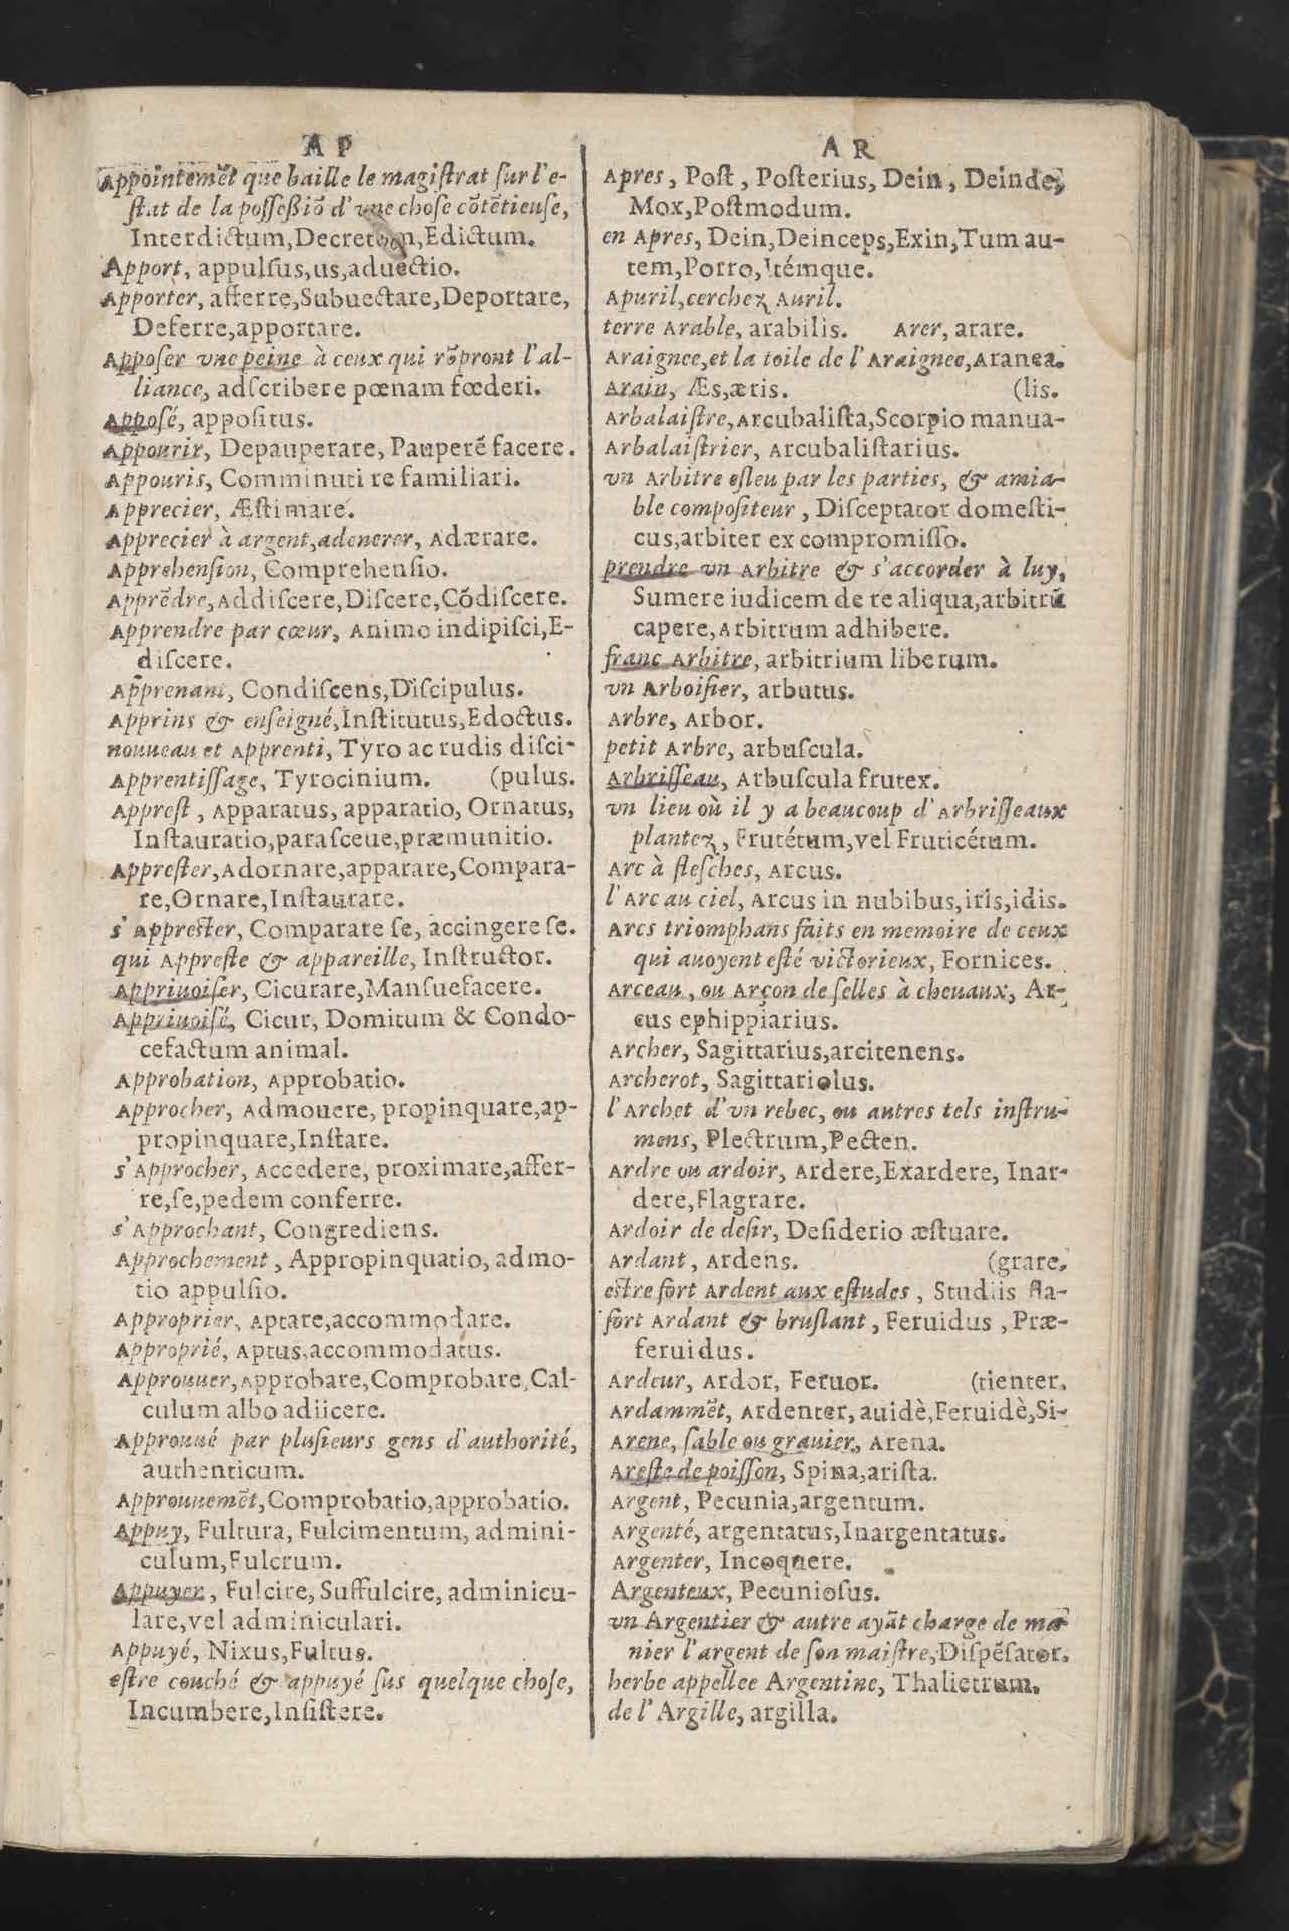 AP
Appointemẽt que baille le magiſtrat ſur l'e-
ſtat de la poſſeßiõ d'vne choſe cõtẽtieuſe,
Interdictum,Decretum,Edictum.
Apport, appulſus,us,aduectio.
Apporter, afferre,Subuectare,Deportare,
Deferre,apportare.
Appoſer vne peine à ceux qui rõpront l'al-
liance, adſcribere pœnam fœderi.
Appoſé, appoſitus.
Appourir, Depauperare, Pauperẽ facere.
Appouris, Comminuti re familiari.
Apprecier, Æſtimare.
Apprecier à argent,adenerer, Adærare.
Apprehenſion, Comprehenſio.
Apprẽdre, Addiſcere,Diſcere,Cõdiſcere.
Apprendre par cœur, Animo indipiſci,E-
diſcere.
Apprenant, Condiſcens,Diſcipulus.
Apprins & enſeigné,Inſtitutus,Edoctus.
nouueau et Apprenti, Tyro ac rudis diſci-
Apprentiſſage, Tyrocinium. (pulus.
Appreſt, Apparatus, apparatio, Ornatus,
Inſtauratio,paraſceue,præmunitio.
Appreſter,Adornare,apparare,Compara-
re,Ornare,Inſtaurare.
s'Appreſter, Comparare ſe, accingere ſe.
qui Appreſte & appareille, Inſtructor.
Appriuoiſer, Cicurare,Manſuefacere.
Appriuoiſé, Cicur, Domitum & Condo-
cefactum animal.
Approbation, Approbatio.
Approcher, Admouere, propinquare,ap-
propinquare,Inſtare.
s'Approcher, Accedere, proximare,affer-
re,ſe,pedem conferre.
s'Approchant, Congrediens.
Approchement, Appropinquatio, admo-
tio appulſio.
Approprier, Aptare,accommodare.
Approprié, Aptus,accommodatus.
Approuuer,Approbare,Comprobare,Cal-
culum albo adiicere.
Approuué par pluſieurs gens d'authorité,
authenticum.
Approuuemẽt,Comprobatio,approbatio.
Appuy, Fultura, Fulcimentum, admini-
culum,Fulcrum.
Appuyer, Fulcire, Suffulcire, adminicu-
lare,vel adminiculari.
Appuyé, Nixus,Fultus.
eſtre couché & appuyé ſus quelque choſe,
Incumbere,Inſiſtere.
AR
Apres, Poſt, Poſterius, Dein, Deinde,
Mox,Poſtmodum.
en Apres, Dein,Deinceps,Exin,Tum au-
tem,Porro,Itémque.
Apuril,cerchez Auril.
terre Arable, arabilis. Arer, arare.
Araignee,et la toile de l'Araignee,Aranea.
Arain, Æs,æris. (lis.
Arbalaiſtre,Arcubaliſta,Scorpio manua-
Arbalaiſtrier, Arcubaliſtarius.
vn Arbitre eſleu par les parties, & amia-
ble compoſiteur, Diſceptator domeſti-
cus,arbiter ex compromiſſo.
prendre vn Arbitre & s'accorder à luy,
Sumere iudicem de re aliqua,arbitrũ
capere,Arbitrum adhibere.
franc Arbitre, arbitrium liberum.
vn Arboiſier, arbutus.
Arbre, Arbor.
petit Arbre, arbuſcula.
Arbriſſeau, Arbuſcula frutex.
vn lieu où il y a beaucoup d'Arbriſſeaux
plantez, Frutétum,vel Fruticétum.
Arc à fleſches, Arcus.
l'Arc au ciel, Arcus in nubibus,iris,idis.
Arcs triomphans faits en memoire de ceux
qui auoyent eſté victorieux, Fornices.
Arceau, ou Arçon de ſelles à cheuaux, Ar-
cus ephippiarius.
Archer, Sagittarius,arcitenens.
Archerot, Sagittariolus.
l'Archet d'vn rebec, ou autres tels inſtru-
mens, Plectrum,Pecten.
Ardre ou ardoir, Ardere,Exardere, Inar-
dere,Flagrare.
Ardoir de deſir, Deſiderio æſtuare.
Ardant, Ardens. (grare.
eſtre fort Ardent aux eſtudes, Studiis fla-
fort Ardant & bruſlant, Feruidus, Præ-
feruidus.
Ardeur, Ardor, Feruor. (tienter.
Ardammẽt, Ardenter, auidè,Feruidè,Si-
Arene, ſable ou grauier, Arena.
Areſte de poiſſon, Spina,ariſta.
Argent, Pecunia,argentum.
Argenté, argentatus,Inargentatus.
Argenter, Incoquere.
Argenteux, Pecunioſus.
vn Argentier & autre ayãt charge de ma-
nier l'argent de ſon maiſtre,Diſpẽſator.
herbe appellee Argentine, Thalietrum.
de l'Argille, argilla.